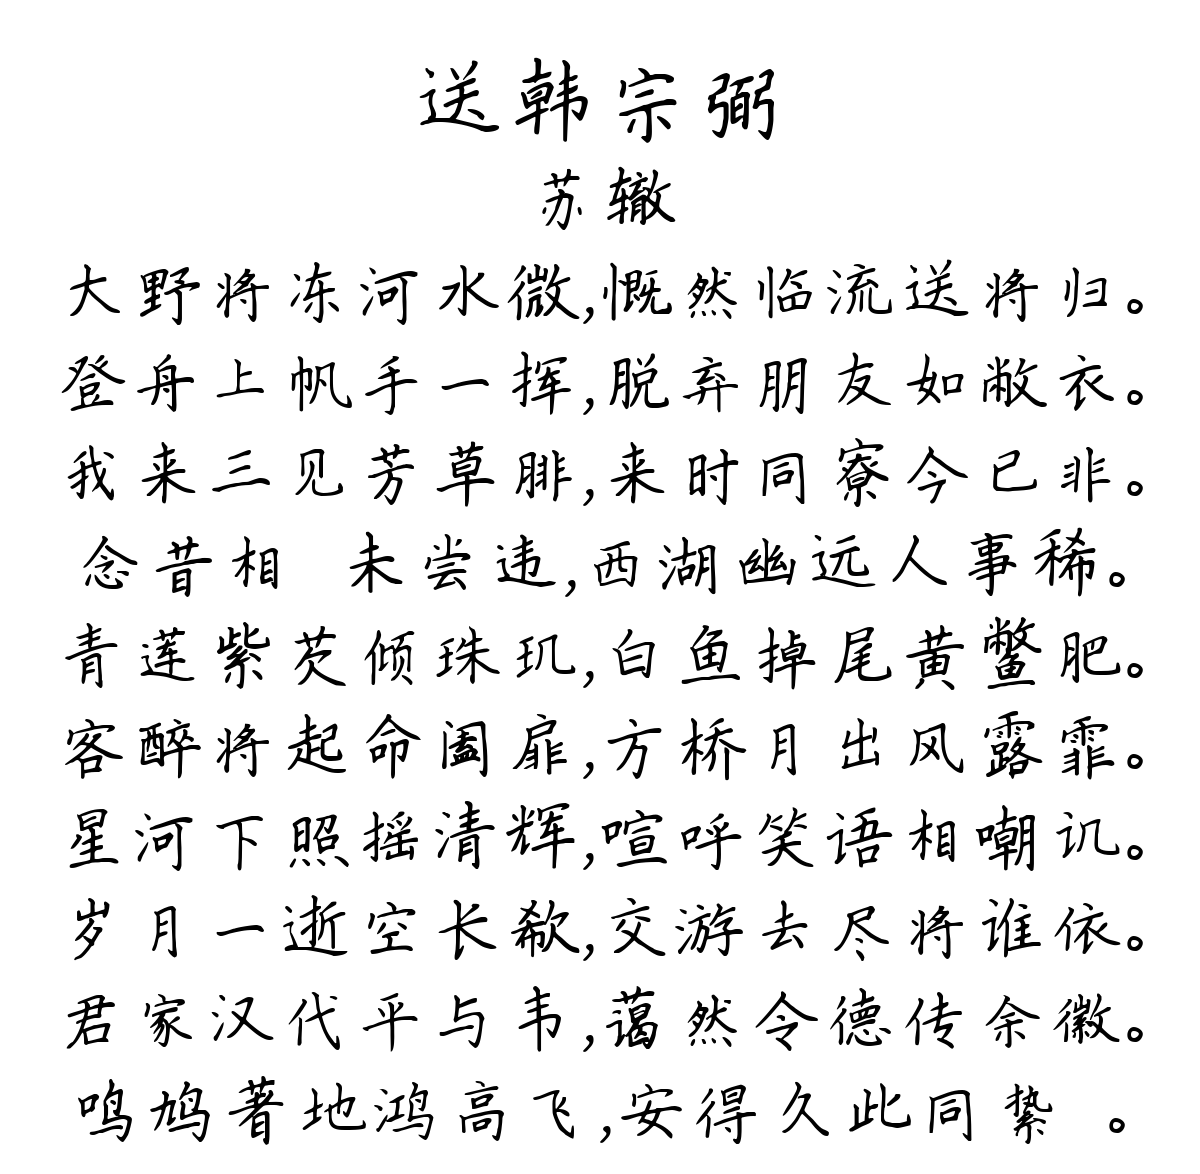 送韩宗弼
苏辙
大野将冻河水微,慨然临流送将归。
登舟上帆手一挥,脱弃朋友如敝衣。
我来三见芳草腓,来时同寮今已非。
念昔相 未尝违,西湖幽远人事稀。
青莲紫芡倾珠玑,白鱼掉尾黄鳖肥。
客醉将起命阖扉,方桥月出风露霏。
星河下照摇清辉,喧呼笑语相嘲讥。
岁月一逝空长欷,交游去尽将谁依。
君家汉代平与韦,蔼然令德传余徽。
鸣鸠著地鸿高飞,安得久此同絷 。